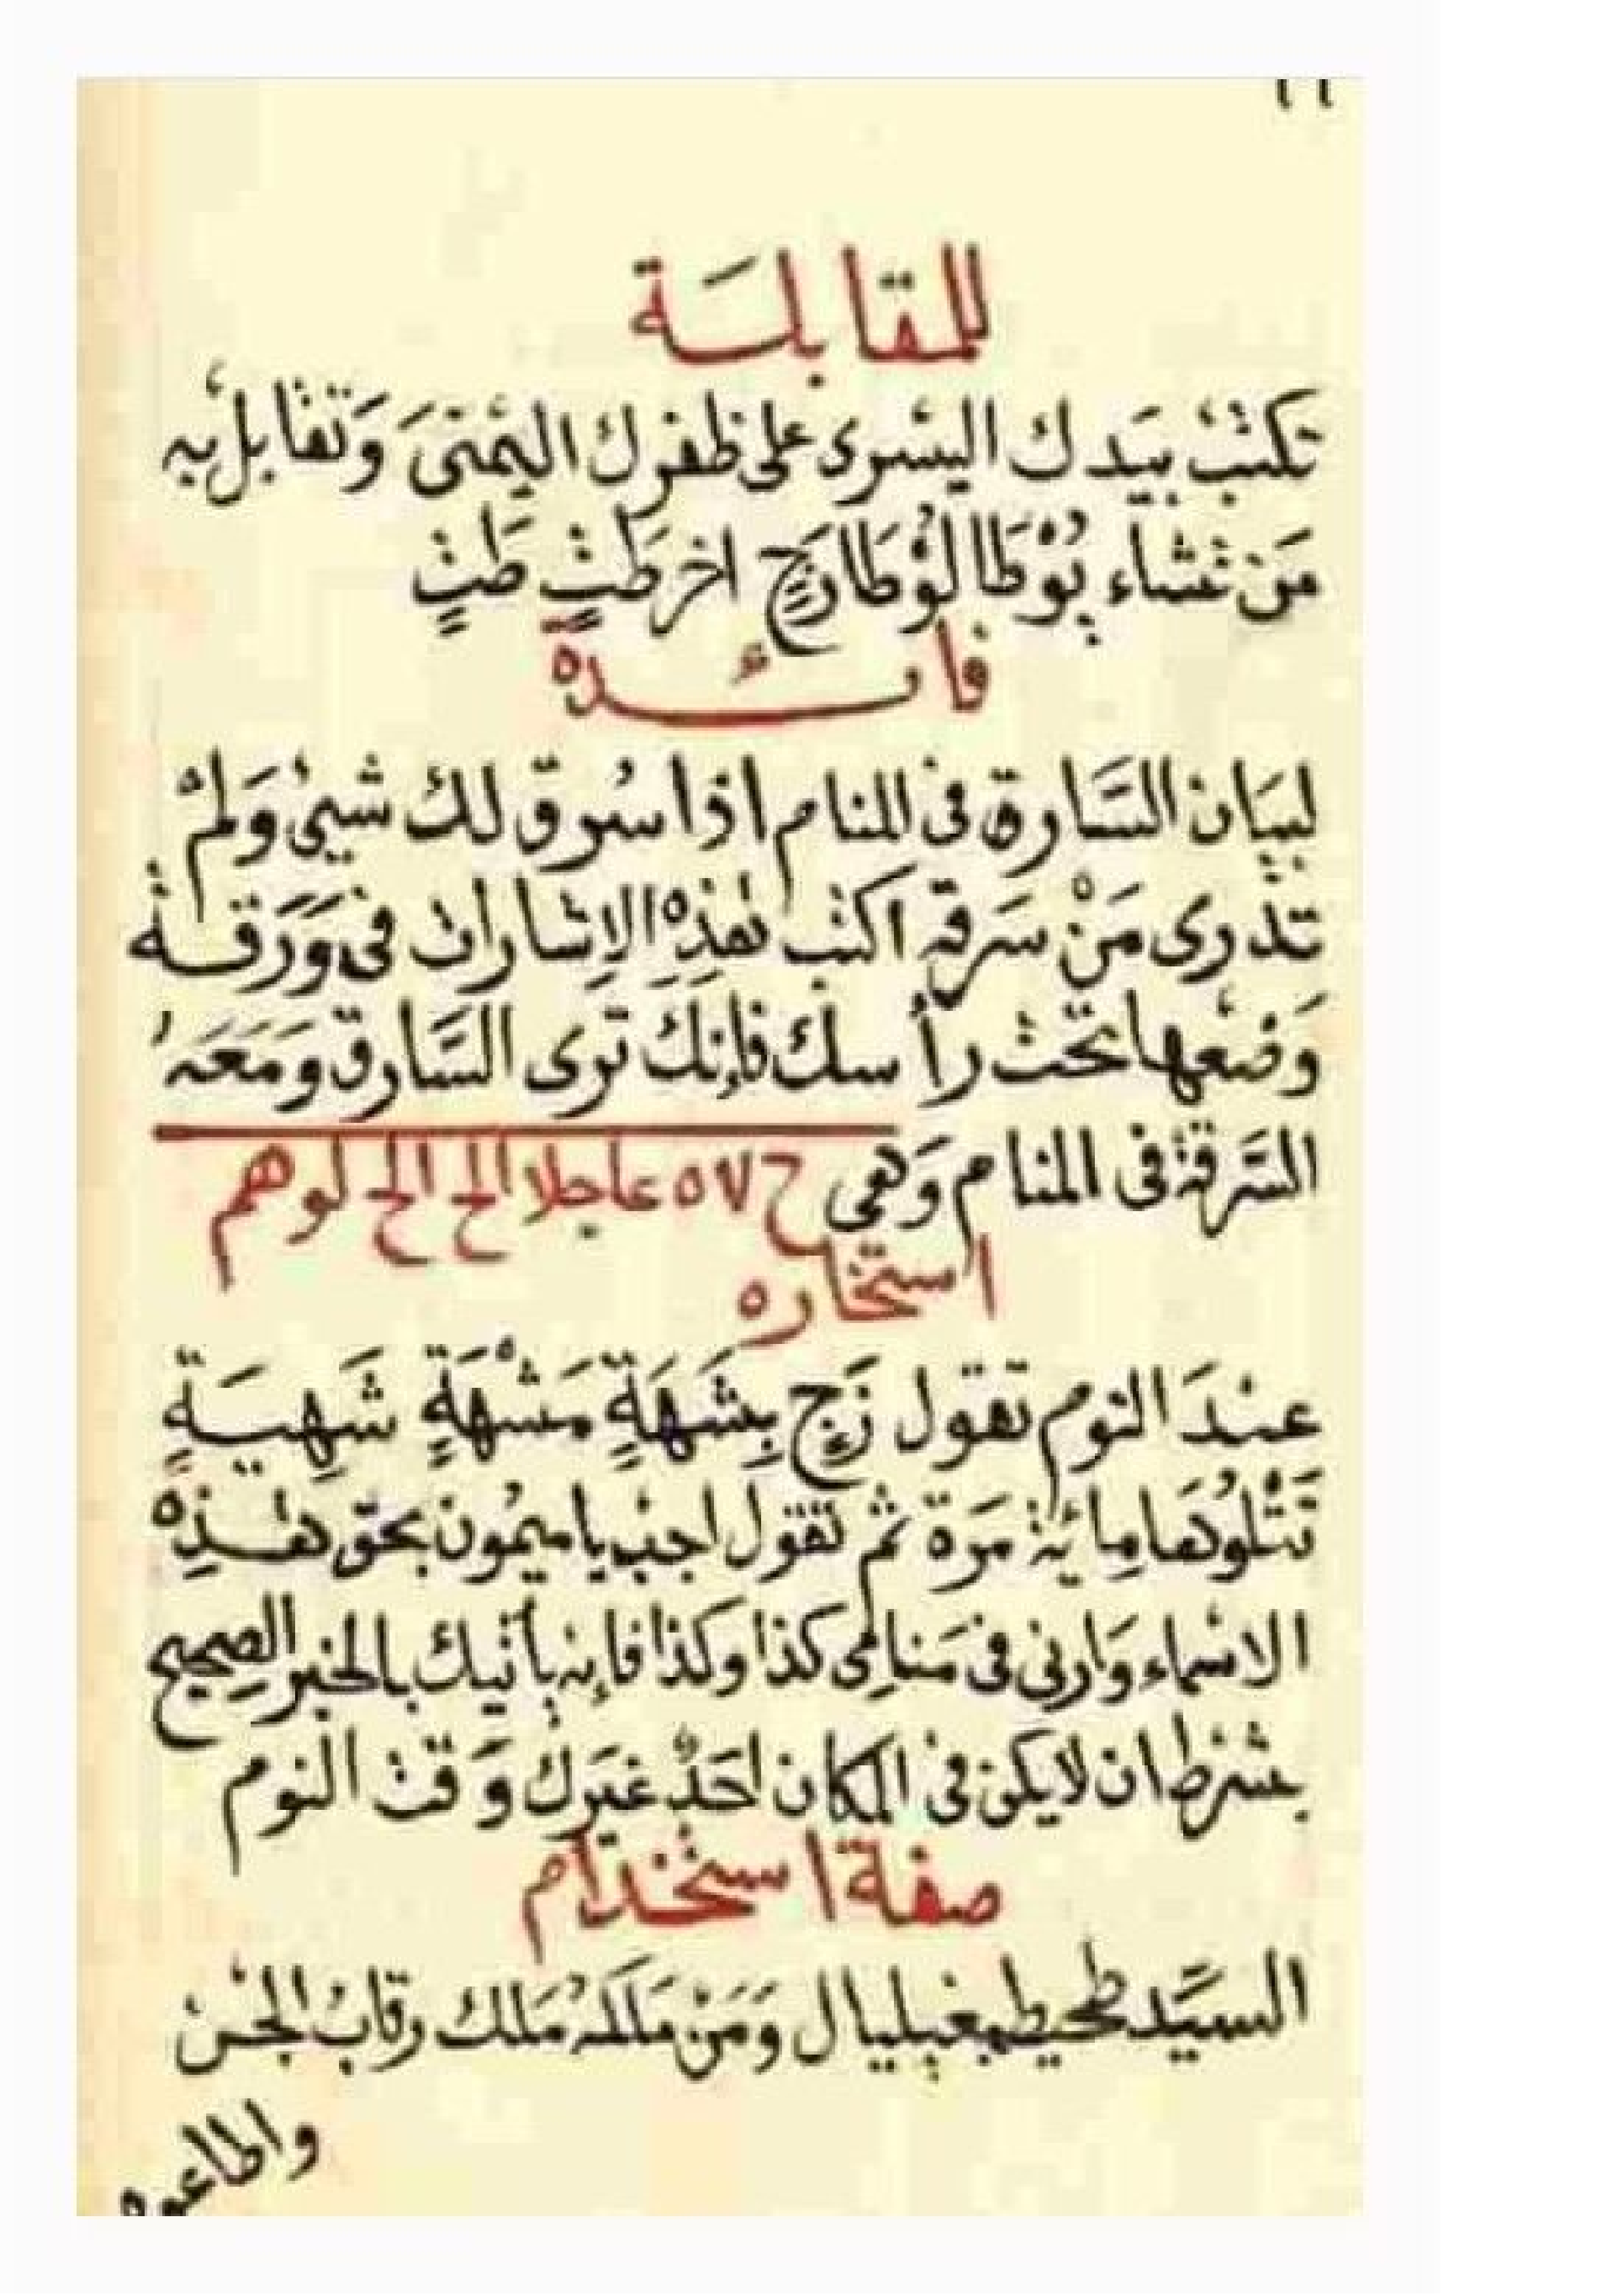 للمقابلة
تكتب بيدك اليسرى على ظفرك اليمنى وتقابل به
من تشاء
فائدة
لبيان السارق فى المنام اذا سرق لك شيئ ولم
تدرى من سرقه اكتب هذه الإشارات فى ورقة
وضعها تحت رأسك فإنك ترى السارق ومعه
السرقة فى المنام وهى ح٧٥ عاجلا الح الح لوهم
استخاره
عند النوم تقول زَجٍ بِشَهَةٍ مَشْهَةٍ شَهِيَةٍ
تتلوها مائة مرة ثم تقول اجب يا ميمون بحق هذه
الاسماء وارنى فى منامى كذا وكذا فإنه يأتيك بالخبر الصحيح
بشرط ان لا يكن فى المكان احد غيرك وقت النوم
صفة استخدام
السيد ومن ملكه ملك رقاب الجن